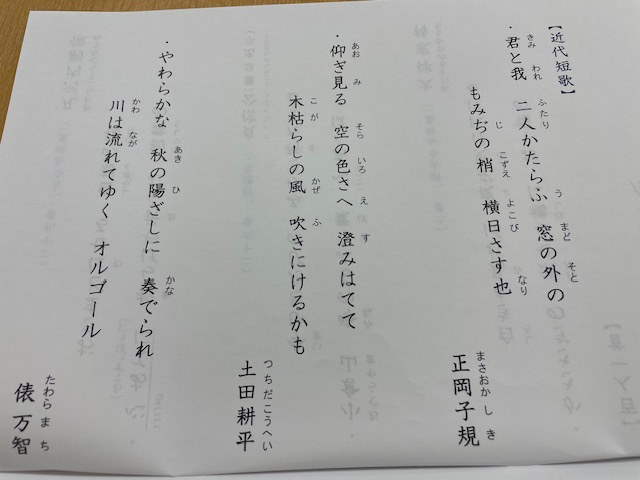 【近代短歌】
・君と我　二人かたらふ　窓の外の
もみぢの梢　横日さす也
正岡子規
・仰ぎ見る　空の色さへ　澄みはてて
木枯らしの風　吹きにけるかも
土田耕平
・やわらかな　秋の陽ざしに　奏でられ
川は流れてゆく　オルゴール
俵万智